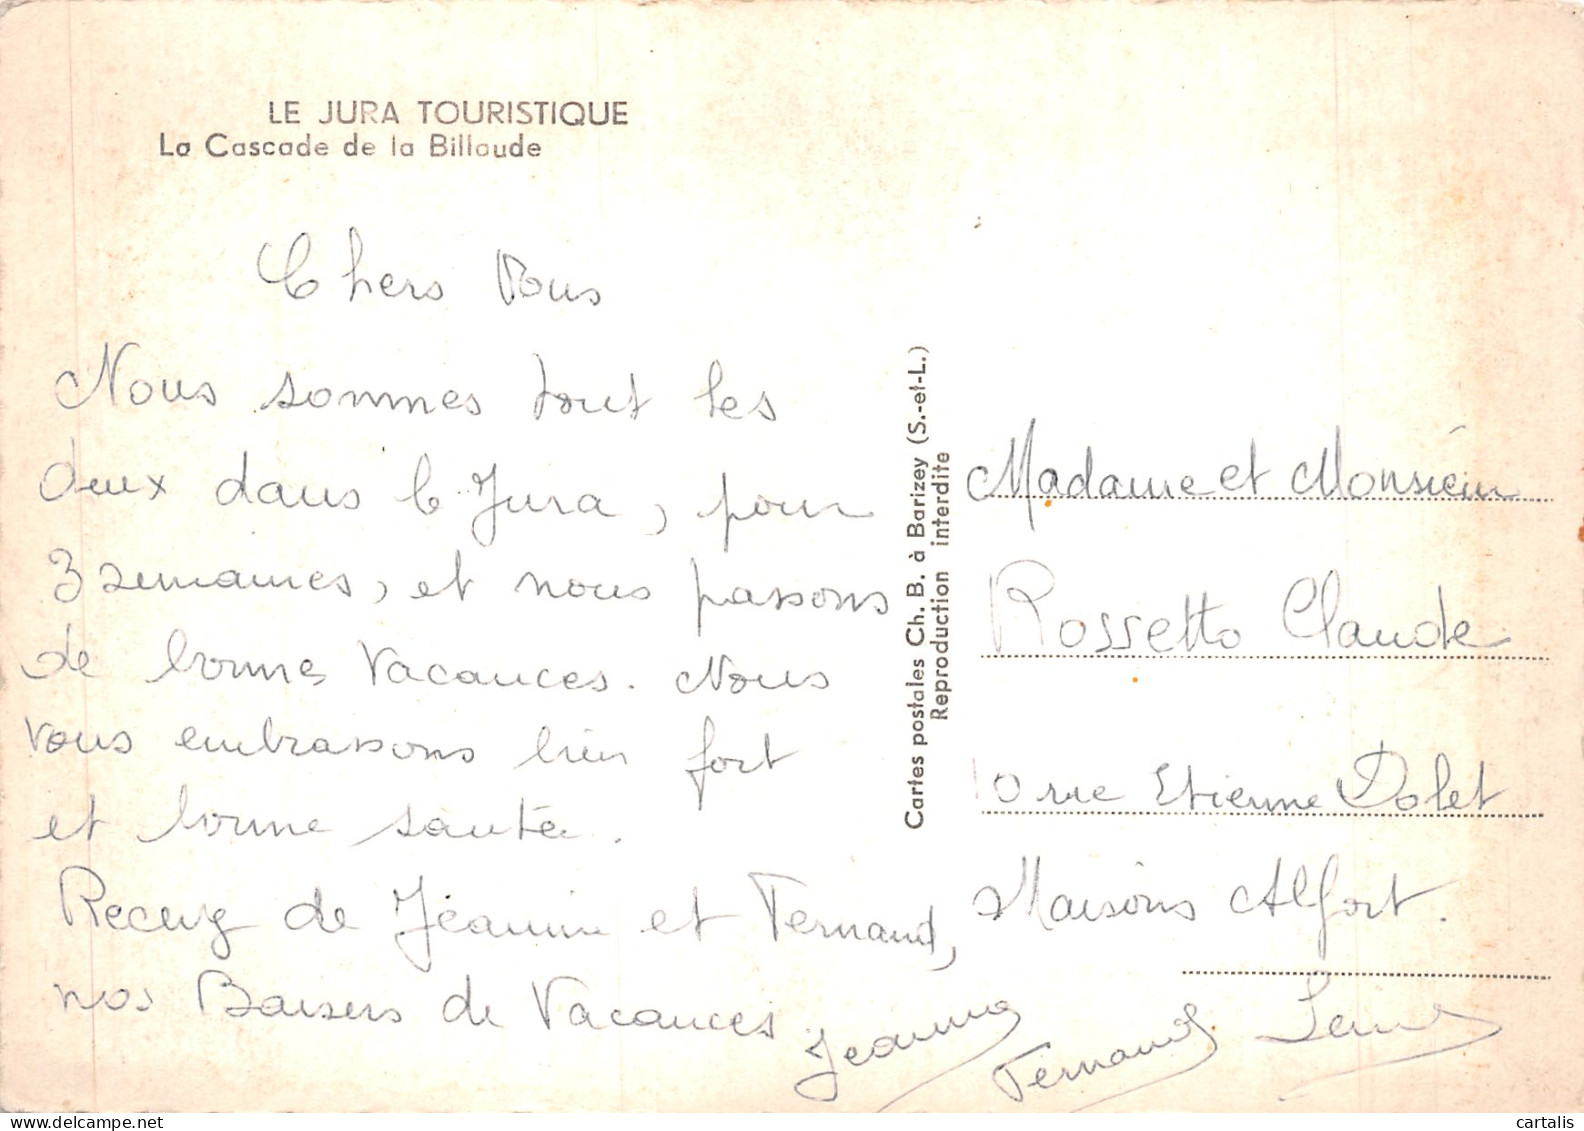 LE JURA TOURISTIQUE
La Cascade de la Billaude
Chers Vous
Nous sommes tout les
deux dans le Jura, pour
3 semaines, et nous passons
de bonnes vacances. Nous
vous embrassons bien fort
et bonne santée.
Recevez de Jéannine et Fernand,
nos Baisers de Vacances
Jeannine
Fernand
Cartes postales Ch. B. à Barizey (S.-et-L.)
Reproduction interdite
Madame et Monsieur
Rossetto Claude
10 rue Etienne Dolet
Maisons Alfort.
cartalis
www.delcampe.net